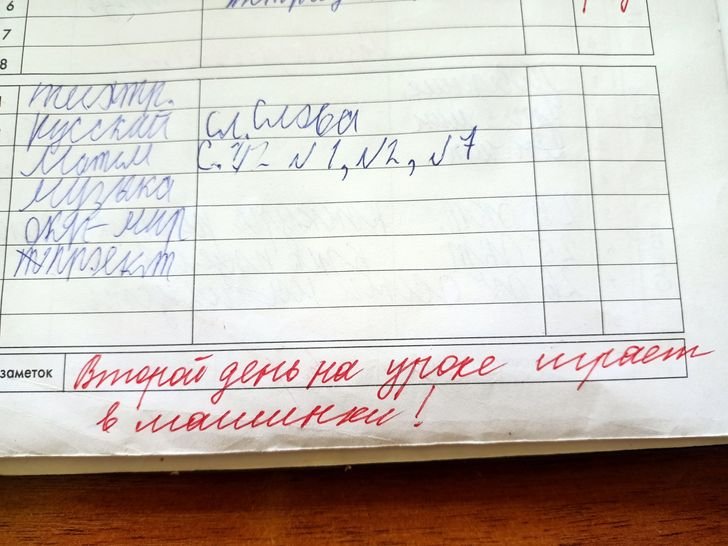 6
7
8
театр.
русский сл. слова
матем с. 42 №1, №2, №7
музыка
окр-мир
проект
заметок Второй день на уроке играет
в машинки!